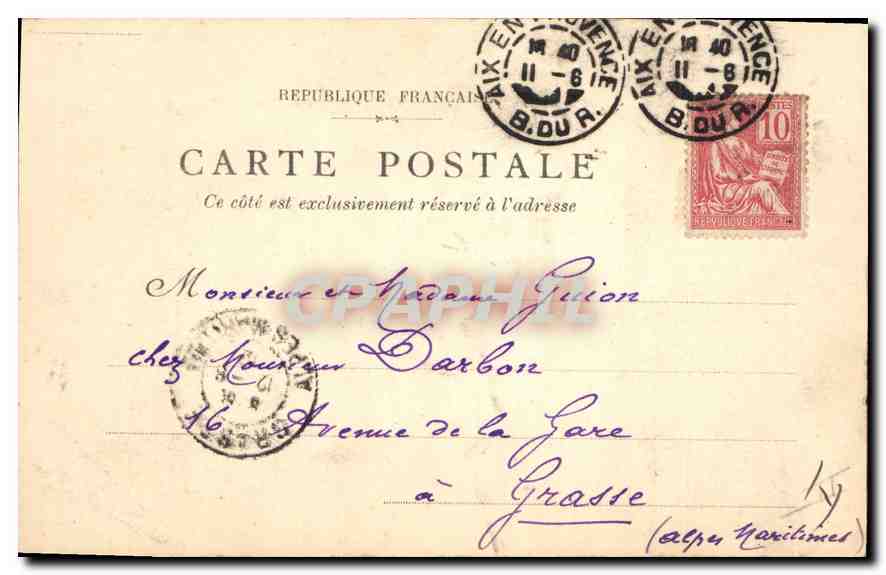 AIX EN PROVENCE
40
11 -6
B. DU R.
AIX EN PROVENCE
40
11 -6
B. DU R.
REPUBLIQUE FRANÇAISE
POSTES
10
REPUBLIQUE FRANÇAISE
CARTE POSTALE
Ce côté est exclusivement réservé à l'adresse
CPAPHIL
Monsieur et Madame Guion
chez Monsieur Darbon
16 Avenue de la Gare
à Grasse
(Alpes Maritimes)
GRASSE
12